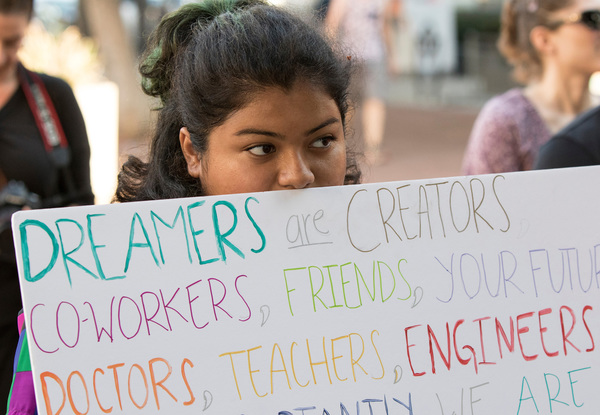 DREAMERS are CREATORS,
CO-WORKERS, FRIENDS, YOUR FUTUR
DOCTORS, TEACHERS, ENGINEERS
WE ARE